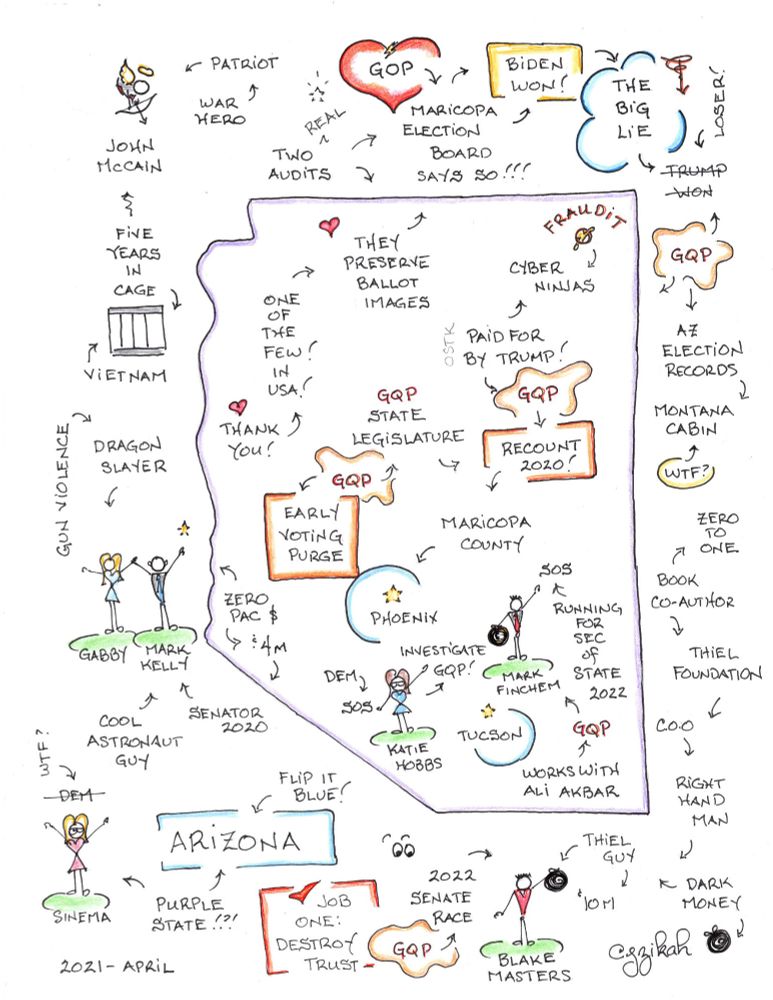 PATRIOT
WAR
HERO
JOHN
McCAIN
FIVE
YEARS
IN
CAGE
VIETNAM
REAL
TWO
AUDITS
GOP
MARICOPA
ELECTION
BOARD
SAYS SO!!!
BIDEN
WON!
THE
BIG
LIE
LOSER!
TRUMP
WON
GQP
AZ
ELECTION
RECORDS
MONTANA
CABIN
WTF?
FRAUDIT
CYBER
NINJAS
THEY
PRESERVE
BALLOT
IMAGES
ONE
OF
THE
FEW!
IN
USA!
THANK
YOU!
OSTK
PAID FOR
BY TRUMP!
GQP
RECOUNT
2020!
GQP
STATE
LEGISLATURE
GQP
EARLY
VOTING
PURGE
MARICOPA
COUNTY
PHOENIX
GUN VIOLENCE
DRAGON
SLAYER
GABBY
MARK
KELLY
COOL
ASTRONAUT
GUY
SENATOR
2020
ZERO
PAC $
$4M
INVESTIGATE
GQP!
DEM
SOS
KATIE
HOBBS
SOS
RUNNING
FOR
SEC
OF
STATE
2022
MARK
FINCHEM
TUCSON
GQP
WORKS WITH
ALI AKBAR
ZERO
TO
ONE
BOOK
CO-AUTHOR
THIEL
FOUNDATION
C.O.O
RIGHT
HAND
MAN
DARK
MONEY
THIEL
GUY
$10M
WTF?
DEM
SINEMA
FLIP IT
BLUE!
ARIZONA
PURPLE
STATE!?!
JOB
ONE:
DESTROY
TRUST
GQP
2022
SENATE
RACE
BLAKE
MASTERS
Cgzikah
2021-APRIL